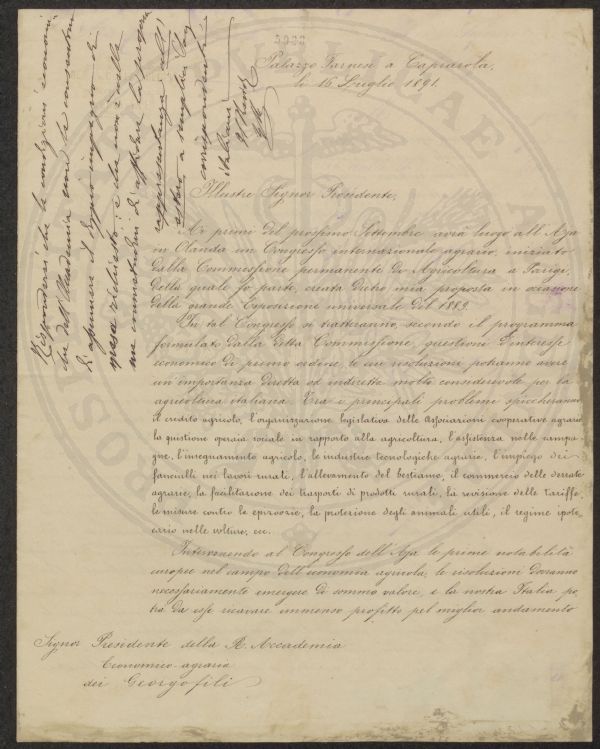 Palazzo Farnese a Caprarola,
li 16 Luglio 1891.
Illustre Signor Presidente,
Ai primi del prossimo Settembre avrà luogo all'Aja
in Olanda un Congresso internazionale agrario, iniziato
dalla Commissione permanente di Agricoltura a Parigi,
della quale fo parte, creata dietro mia proposta in occasione
della grande Esposizione universale del 1889.
In tal Congresso si tratteranno secondo il programma
formulato dalla detta Commissione, questioni d'interesse
economico di primo ordine, le cui risoluzioni potranno avere
un'importanza diretta od indiretta molto considerevole per la
agricoltura italiana. Tra i principali problemi spiccheranno
il credito agricolo, l'organizzazione legislativa delle Associazioni cooperative agrarie
la questione operaia sociale in rapporto alla agricoltura, l'assistenza nelle campa-
gne, l'insegnamento agricolo, le industrie tecnologiche agrarie, l'impiego dei
fanciulli nei lavori rurali, l'allevamento del bestiame, il commercio delle derrate
agrarie, la facilitazione dei trasporti di prodotti rurali, la revisione delle tariffe,
le misure contro le epizoozie, la protezione degli animali utili, il regime ipote-
cario nelle colture, ecc.
Intervenendo al Congresso dell'Aja le prime notabilità
europee nel campo dell'economia agricola, le risoluzioni dovranno
necessariamente emergere di sommo valore, e la nostra Italia po-
trà da esse ricavare immenso profitto pel miglior andamento
Signor Presidente della R. Accademia
Economico-agraria
dei Georgofili
Rispondersi che le condizioni econom.
che dell'Accademia non le consentono
di assumere il doppio impegno di
spesa richiesto; e che non è nelle
sue consuetudini di affidare la propria
rappresentanza all'
estero a soci
corrispondenti
italiani